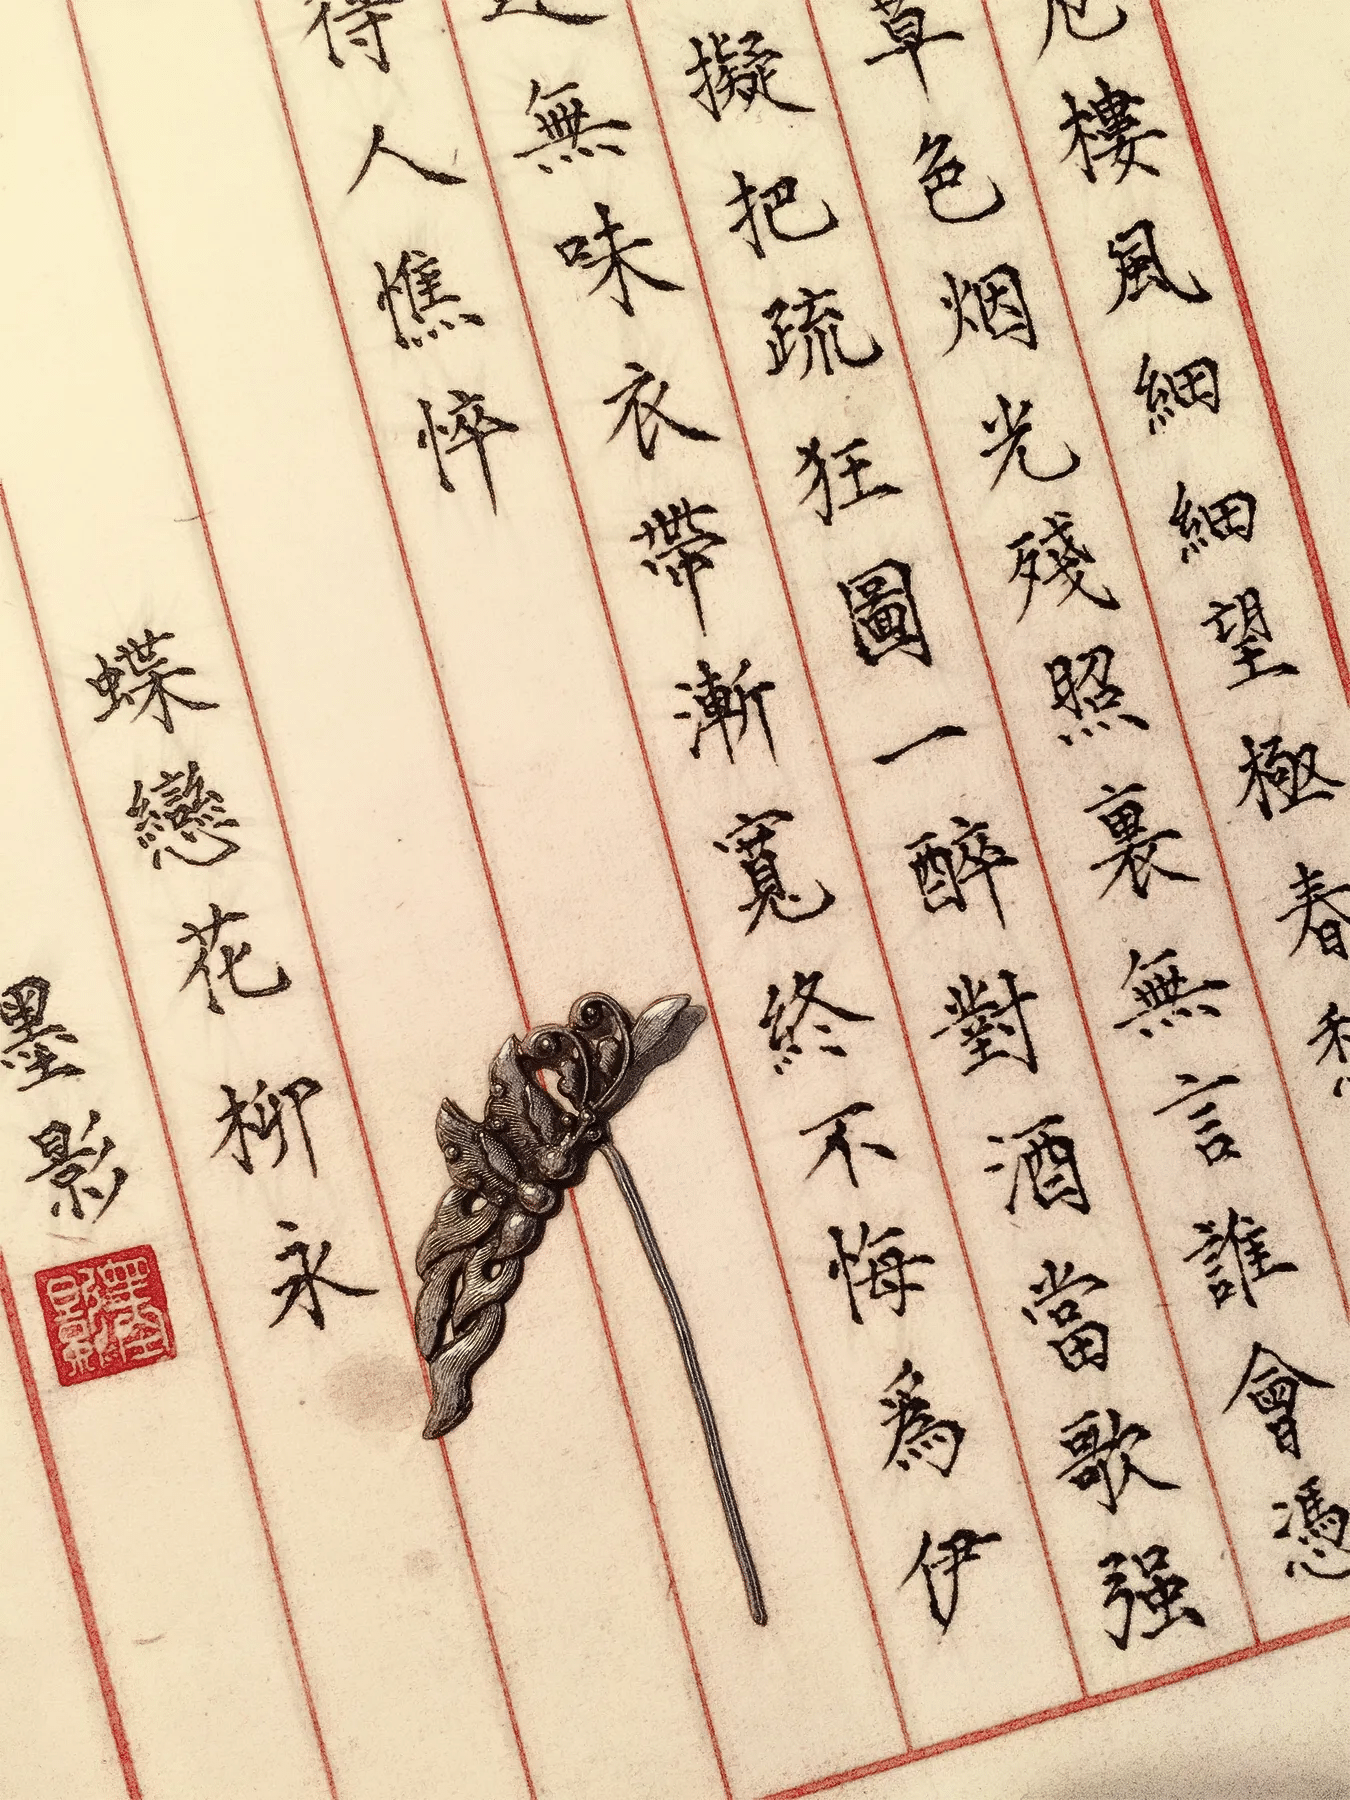 危樓風細細望極春愁
草色烟光殘照裏無言誰會憑
擬把疏狂圖一醉對酒當歌强
還無味衣帶漸寬終不悔爲伊
得人憔悴
蝶戀花柳永
墨影